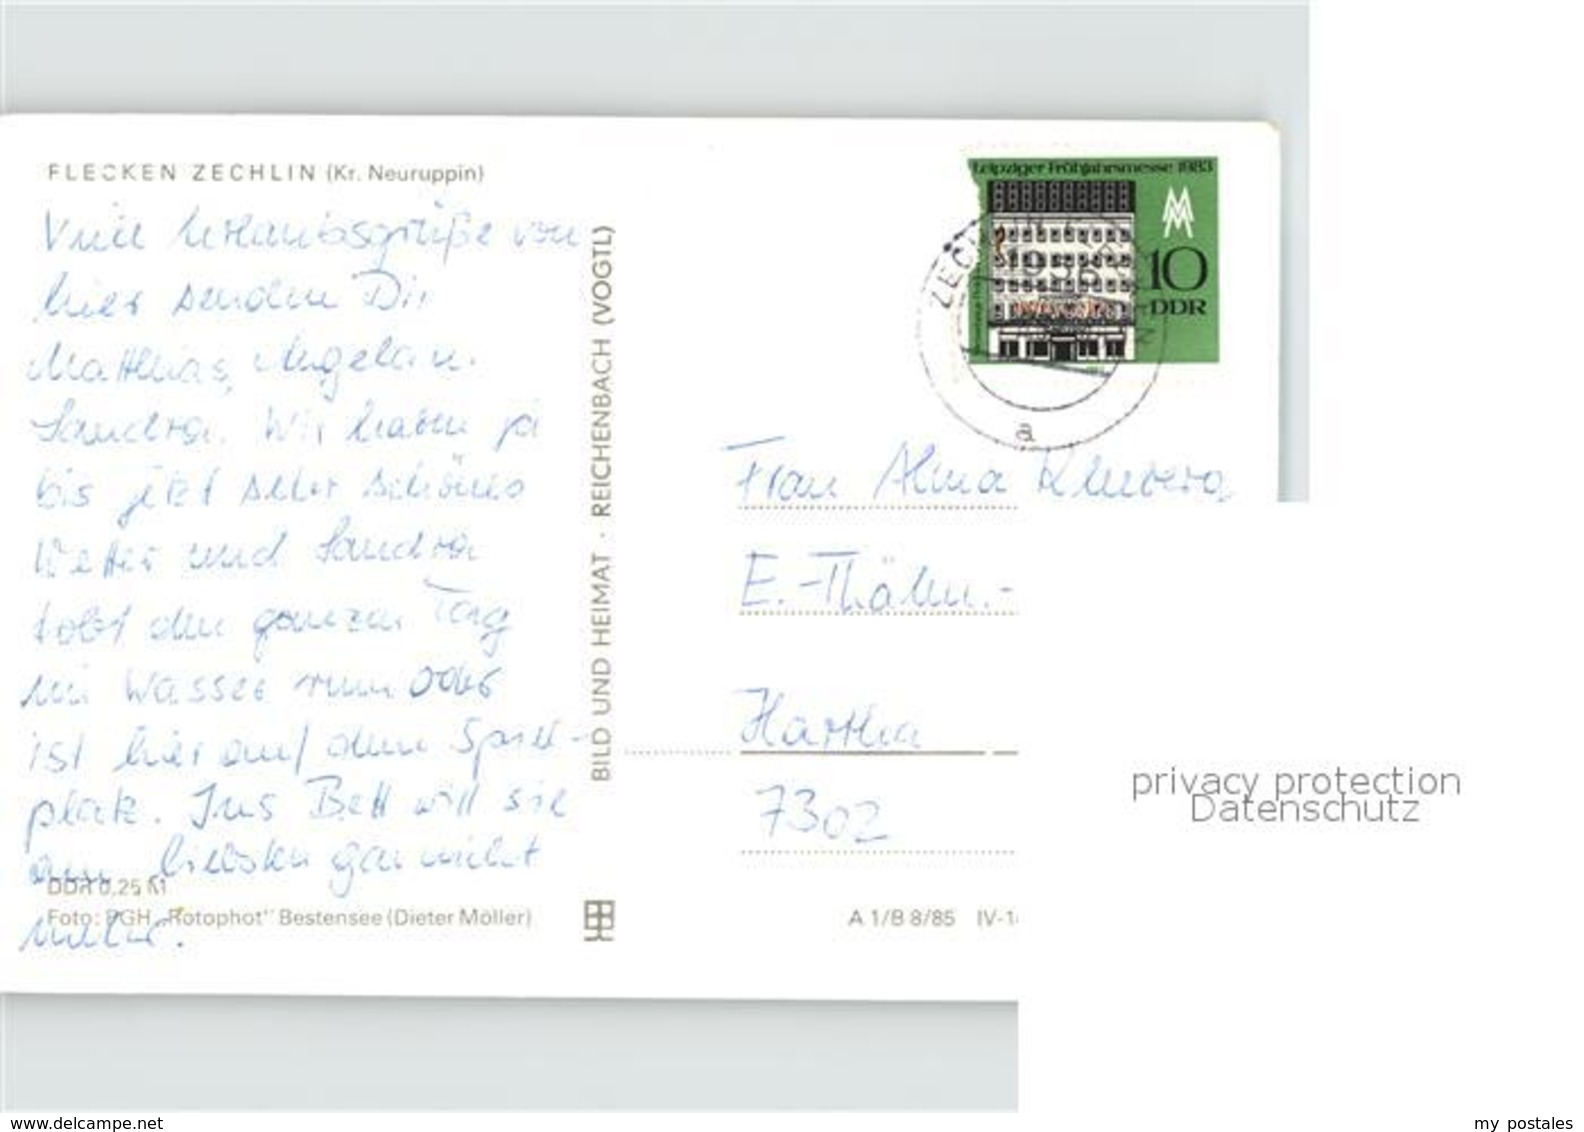 FLECKEN ZECHLIN (Kr. Neuruppin)
Viele Urlaubsgrüße von
hier senden Dir
Matthias, Angela u.
Sandra. Wir haben ja
bis jetzt sehr schönes
Wetter und Sandra
tobt den ganzen Tag
im Wasser rum oder
ist hier auf dem Spiel-
platz. Ins Bett will sie
am liebsten gar nicht
mehr.
DDR 0,25 M
Foto: PGH „Rotophot" Bestensee (Dieter Möller)
BILD UND HEIMAT · REICHENBACH (VOGTL)
Leipziger Frühjahrsmesse 1983
10
DDR
ZECHLIN
a
Frau Alma
E.-Thälm.-
Hartha
7302
A 1/B 8/85 IV-1
privacy protection
Datenschutz
www.delcampe.net
my postales